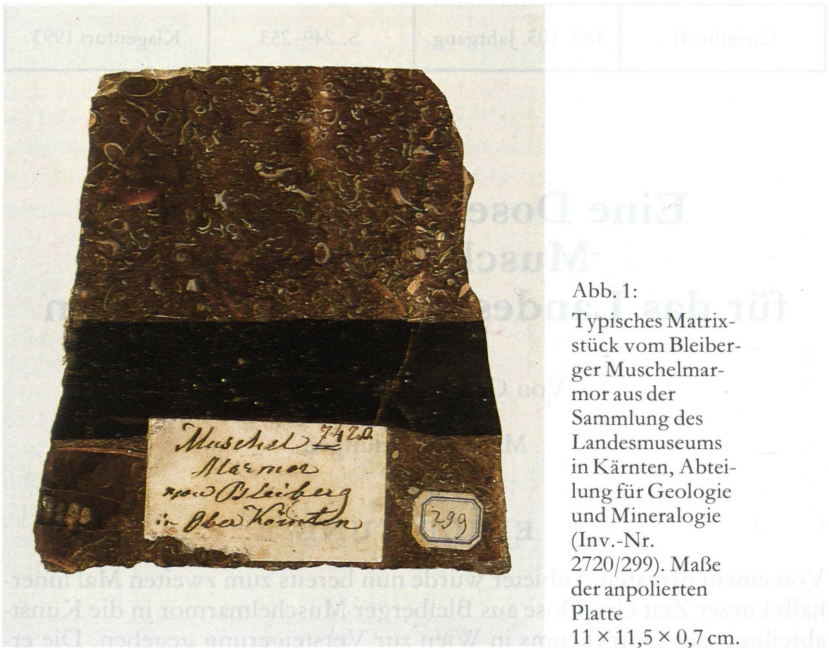 Muschel
Marmor
von Bleiberg
in Ober Kärnten
299
Abb. 1:
Typisches Matrix-
stück vom Bleiber-
ger Muschelmar-
mor aus der
Sammlung des
Landesmuseums
in Kärnten, Abtei-
lung für Geologie
und Mineralogie
(Inv.-Nr.
2720/299). Maße
der anpolierten
Platte
11 × 11,5 × 0,7 cm.